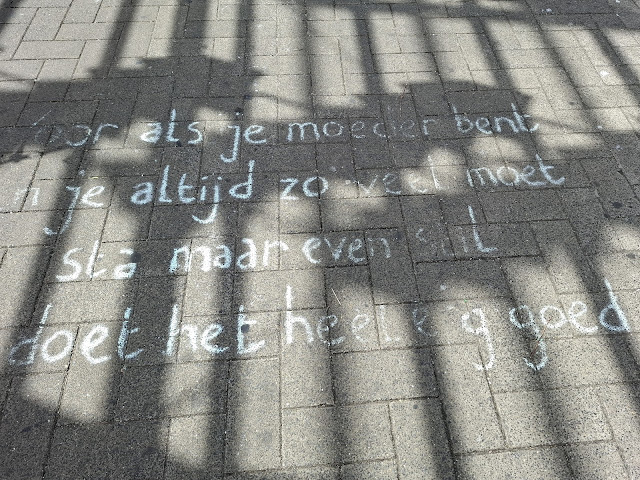 Voor als je moeder bent
en je altijd zoveel moet
sta maar even stil
je doet het heel erg goed